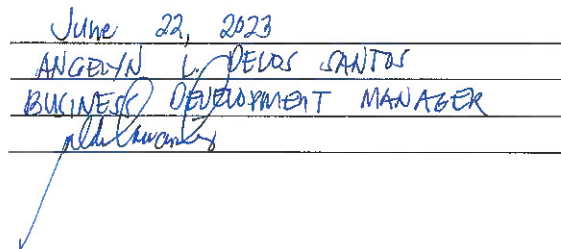 June 22, 2023
ANGELYN L. DELOS SANTOS
BUSINESS DEVELOPMENT MANAGER